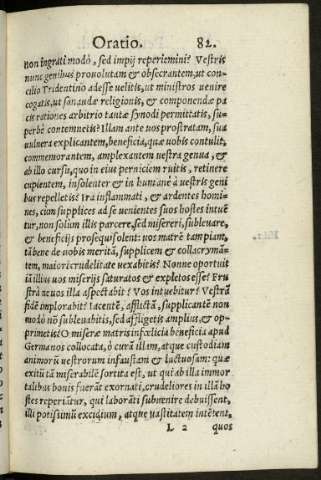 Oratio. 82.
non ingrati modò, sed impij reperiemini? Vestris
nunc genibus prouolutam & obsecrantem, ut con-
cilio Tridentino adesse uelitis, ut ministros uenire
cogatis, ut sanandæ religionis, & componendæ pa
cis rationes arbitrio tantæ synodi permittatis, su-
perbè contemnetis? Illam ante uos prostratam, sua
uulnera explicantem, beneficia, quæ uobis contulit,
commemorantem, amplexantem uestra genua, &
ab illo cursu, quo in eius perniciem ruitis, retinere
cupientem, insolenter & inhumanè à uestris geni
bus repelletis? Ira inflammati, & ardentes homi-
nes, cùm supplices ad se uenientes suos hostes intuē
tur, non solùm illis parcere, sed misereri, subleuare,
& beneficijs prosequi solent: uos matrē tam piam,
tā bene de uobis meritā, supplicem & collacrymā-
tem, maiori crudelitate uexabitis? Nonne oportuit
iā illius uos miserijs saturatos et expletos esse? Fru
strà ne uos illa aspectabit? Vos intuebitur? Vestrā
fidē implorabit? Iacentē, afflictā, supplicantē non
modò nō subleuabitis, sed affligetis amplius, et op-
primetis? O miseræ matris infœlicia beneficia apud
Germanos collocata, ô curā illam, atque custodiam
animorū uestrorum infaustam & luctuosam: quæ
exitū tā miserabilē sortita est, ut qui ab illa immor
talibus bonis fuerāt exornati, crudeliores in illā ho
stes reperiātur, qui laborāti subuenire debuissent,
illi potissimū excidium, atque uastitatem intētent,
L 2 quos